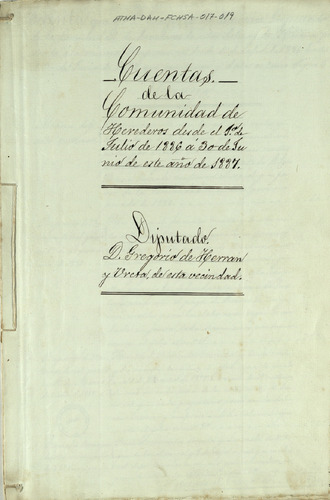 ATHA-DAH-FCHSA-017-019
Cuentas.
de la
Comunidad de
Herederos desde el 1º de
Julio de 1886 á 30 de Ju-
nio de este año de 1887.
Diputado.
D. Gregorio de Herran
y Ureta, de esta vecindad.